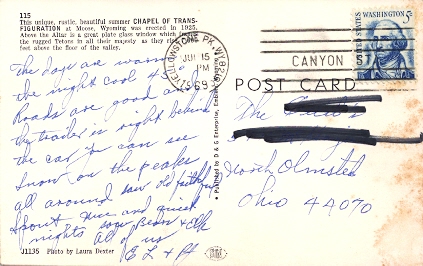 115
This unique, rustic, beautiful summer CHAPEL OF TRANS-
FIGURATION at Moose, Wyoming was erected in 1925.
Above the Altar is a great plate glass window which
the rugged Tetons in all their majesty as they
feet above the floor of the valley.
The days are warm
the night cool &
Roads are good
the trailer is right behind
the car you can see
snow on the peaks
all around saw old faithful
spout nice and quiet
nights saw Bears & Elk
All of us
J1135 Photo by Laura Dexter
Published by D & G Enterprise
YELLOWSTONE PK. WYO.
JUL 15
PM
1969
CANYON
UNITED STATES
WASHINGTON 5¢
POST CARD
The
North Olmsted
Ohio 44070